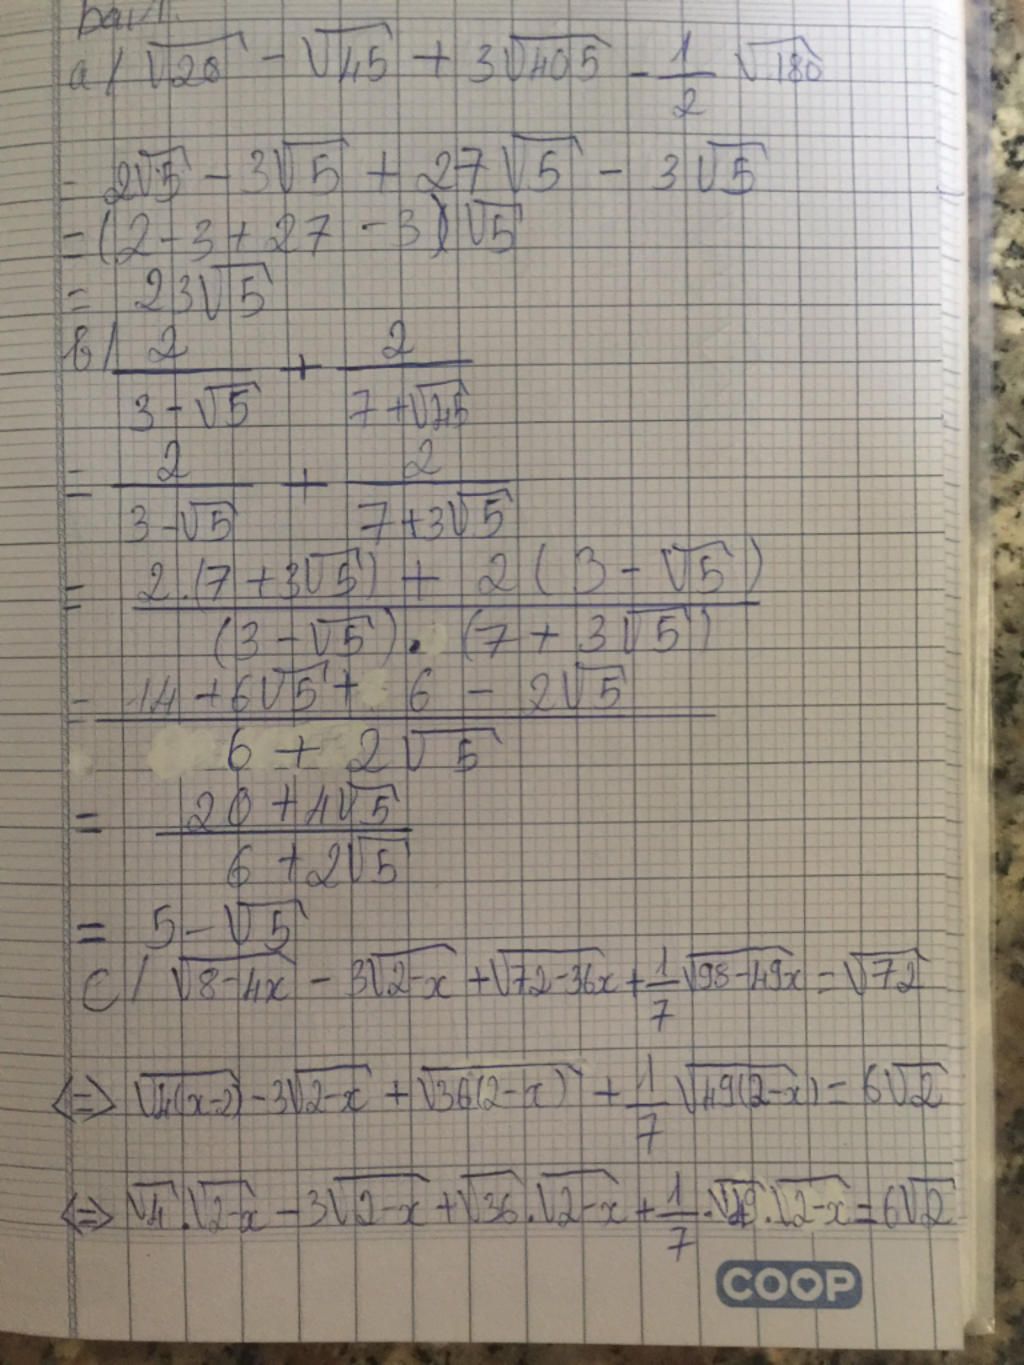 Bài 1
a/ √20 - √45 + 3√405 - 1/2 √180
= 2√5 - 3√5 + 27√5 - 3√5
= (2 - 3 + 27 - 3)√5
= 23√5
b/ 2/(3 - √5) + 2/(7 + √45)
= 2/(3 - √5) + 2/(7 + 3√5)
= (2.(7 + 3√5) + 2(3 - √5))/((3 - √5).(7 + 3√5))
= (14 + 6√5 + 6 - 2√5)/(6 + 2√5)
= (20 + 4√5)/(6 + 2√5)
= 5 - √5
c/ √(8-4x) - 3√(2-x) + √(72-36x) + 1/7 √(98-49x) = √72
<=> √(4(x-2)) - 3√(2-x) + √(36(2-x)) + 1/7 √(49(2-x)) = 6√2
<=> √4.√(2-x) - 3√(2-x) + √36.√(2-x) + 1/7.√49.√(2-x) = 6√2
COOP